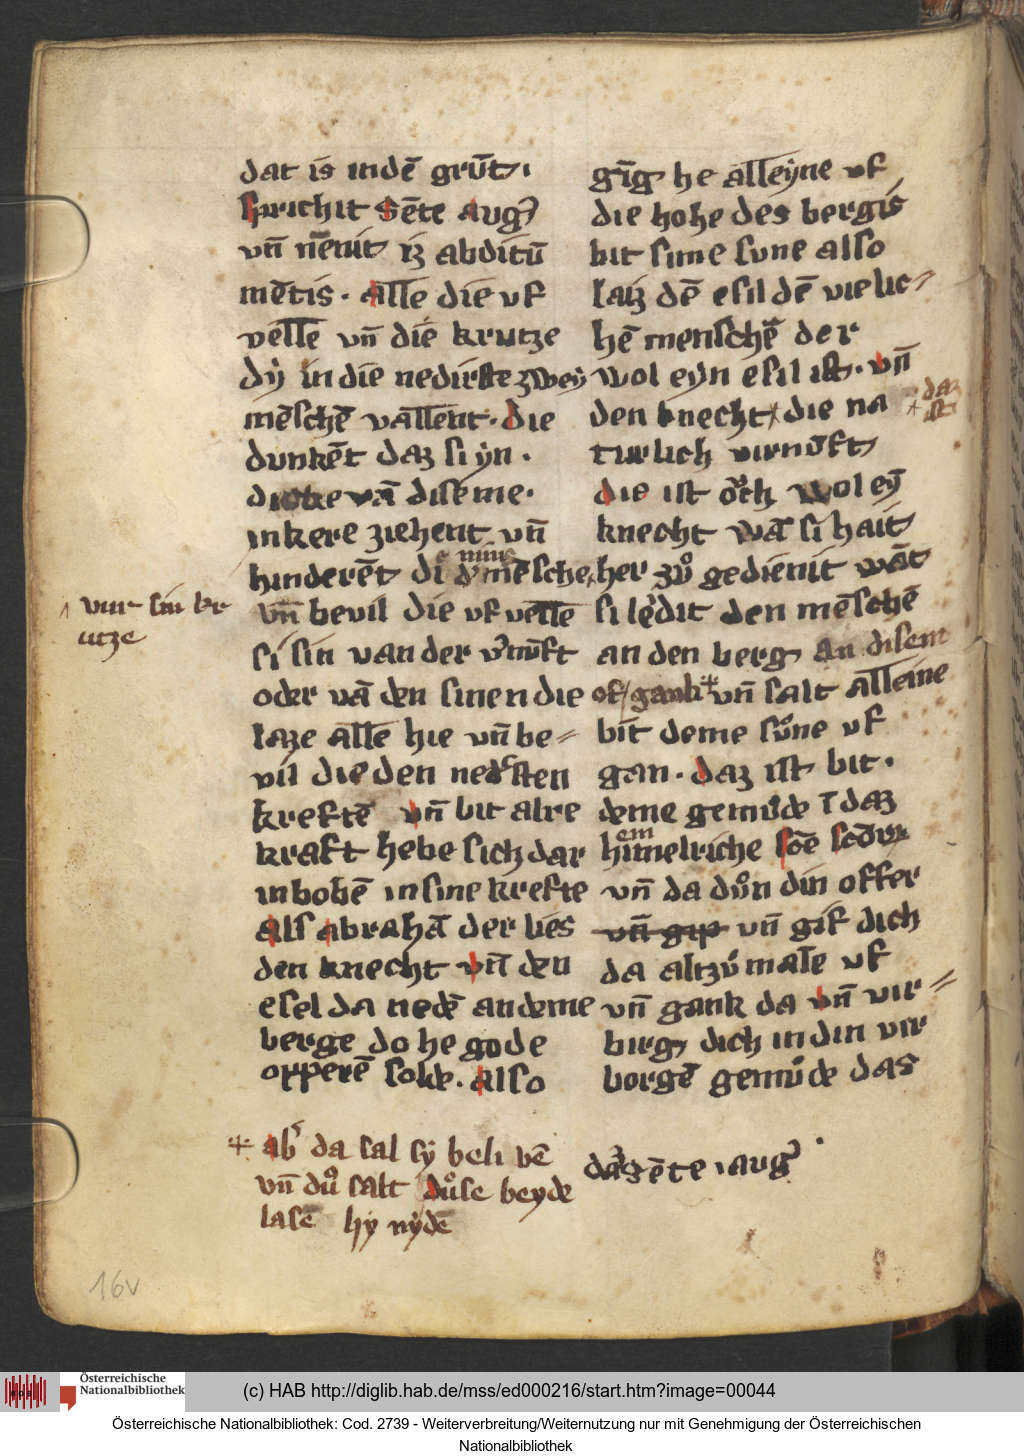 dat is in dē grūt.
sprichit Sēte Aug
vn̄ nēnit iz abditū
mētis. Alle die uf
velle vn̄ die krutze
dy in die nedirste zwey
mēschē vallent. die
dunkēt daz si yn.
vā diseme.
inkere ziehent vn̄
nime
hinderēt di mēsche,
vur sin kr
utze
vn̄ bevil die uf velle
si sin van der v'nuft
oder vā den sinen die
laze alle hie vn̄ be=
vil die den nedˢsten
kreftē vn̄ bit alre
kraft hebe sich dar
in bobē in sine krefte
Als abrahā der lies
den knecht vn̄ den
esel da nedē an deme
berge do he gode
opperē solde. also
✢ ab' da sal sy beli bē
vn̄ du salt duse beyde
lasē hy nydē
gīg he alleyne uf
die hohe des bergis
bit sime sune also
laiz dē esil dē vielic=
hē menschē der
wol eyn esil ist. vn̄
den knecht die na
daz
ist
turlich virnuft
die ist och wol ey
knecht wā si hait
her zu gedienit wāt
si ledit den mēschē
an den berg an disem
of/ganc vn̄ salt alleine
bit deme sune uf
gan. daz ist bit.
deme gemude ī daz
em
himelriche
vn̄ da dun din offer
vn̄ gip vn̄ gif dich
da altzumale uf
vn̄ gank da vn̄ vir=
birg dich in din vir
borgē gemude das
sēte aug
16v
Österreichische
Nationalbibliothek
(c) HAB http://diglib.hab.de/mss/ed000216/start.htm?image=00044
Österreichische Nationalbibliothek: Cod. 2739 - Weiterverbreitung/Weiternutzung nur mit Genehmigung der Österreichischen
Nationalbibliothek